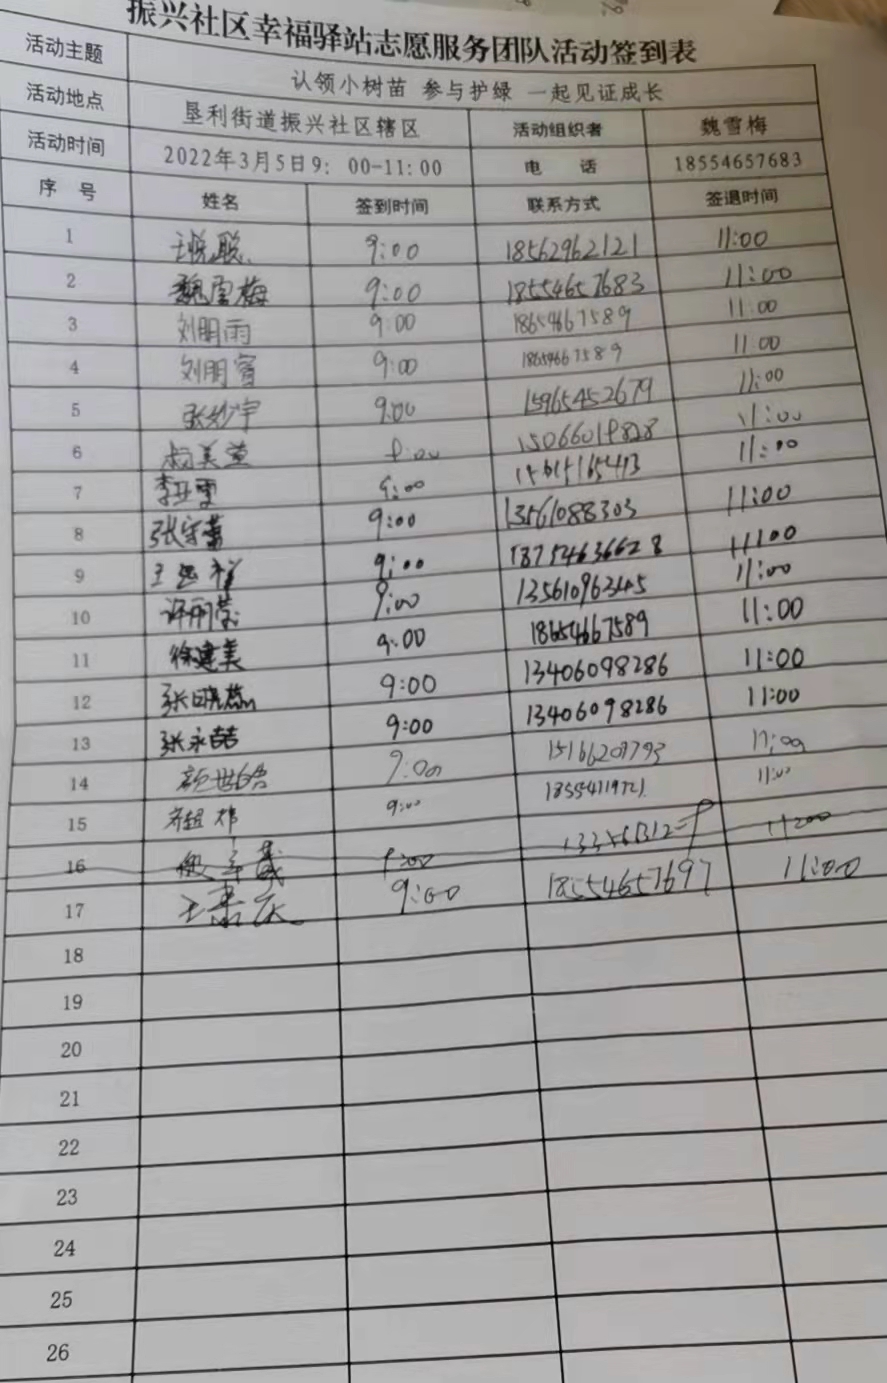 振兴社区幸福驿站志愿服务团队活动签到表
活动主题 认领小树苗 参与护绿 一起见证成长
活动地点 垦利街道振兴社区辖区 活动组织者 魏雪梅
活动时间 2022年3月5日9:00-11:00 电 话 18554657683
序 号 姓名 签到时间 联系方式 签退时间
1 9:00 18562962121 11:00
2 魏雪梅 9:00 18554657683 11:00
3 刘明雨 9:00 18654667589 11:00
4 刘明 9:00 18654667589 11:00
5 张妙宇 9:00 15965452679 11:00
6 9:00 15066019828 11:00
7 李丑雪 9:00 11:00
8 张宇蕾 9:00 13561088303 11:00
9 9:00 18754636628 11:00
10 许丽莹 9:00 13561096345 11:00
11 徐建美 9:00 18654667589 11:00
12 张晓蕊 9:00 13406098286 11:00
13 张永喆 9:00 13406098286 11:00
14 颜世皓 9:00 15166207793 11:00
15 9:00 18554119721 11:00
16 9:00 11:00
17 9:00 18554657697 11:00
18
19
20
21
22
23
24
25
26